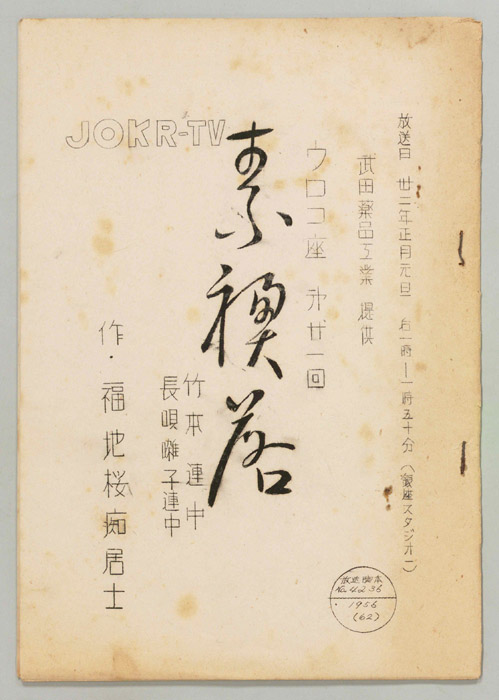 放送日 丗二年正月元旦 自一時―一時五十分(銀座スタジオ一)
武田薬品工業 提供
ウロコ座 第廿一回
素襖落
竹本連中
長唄囃子連中
作・福地桜痴居士
JOKR-TV
放送脚本
No.4236
1956
(62)